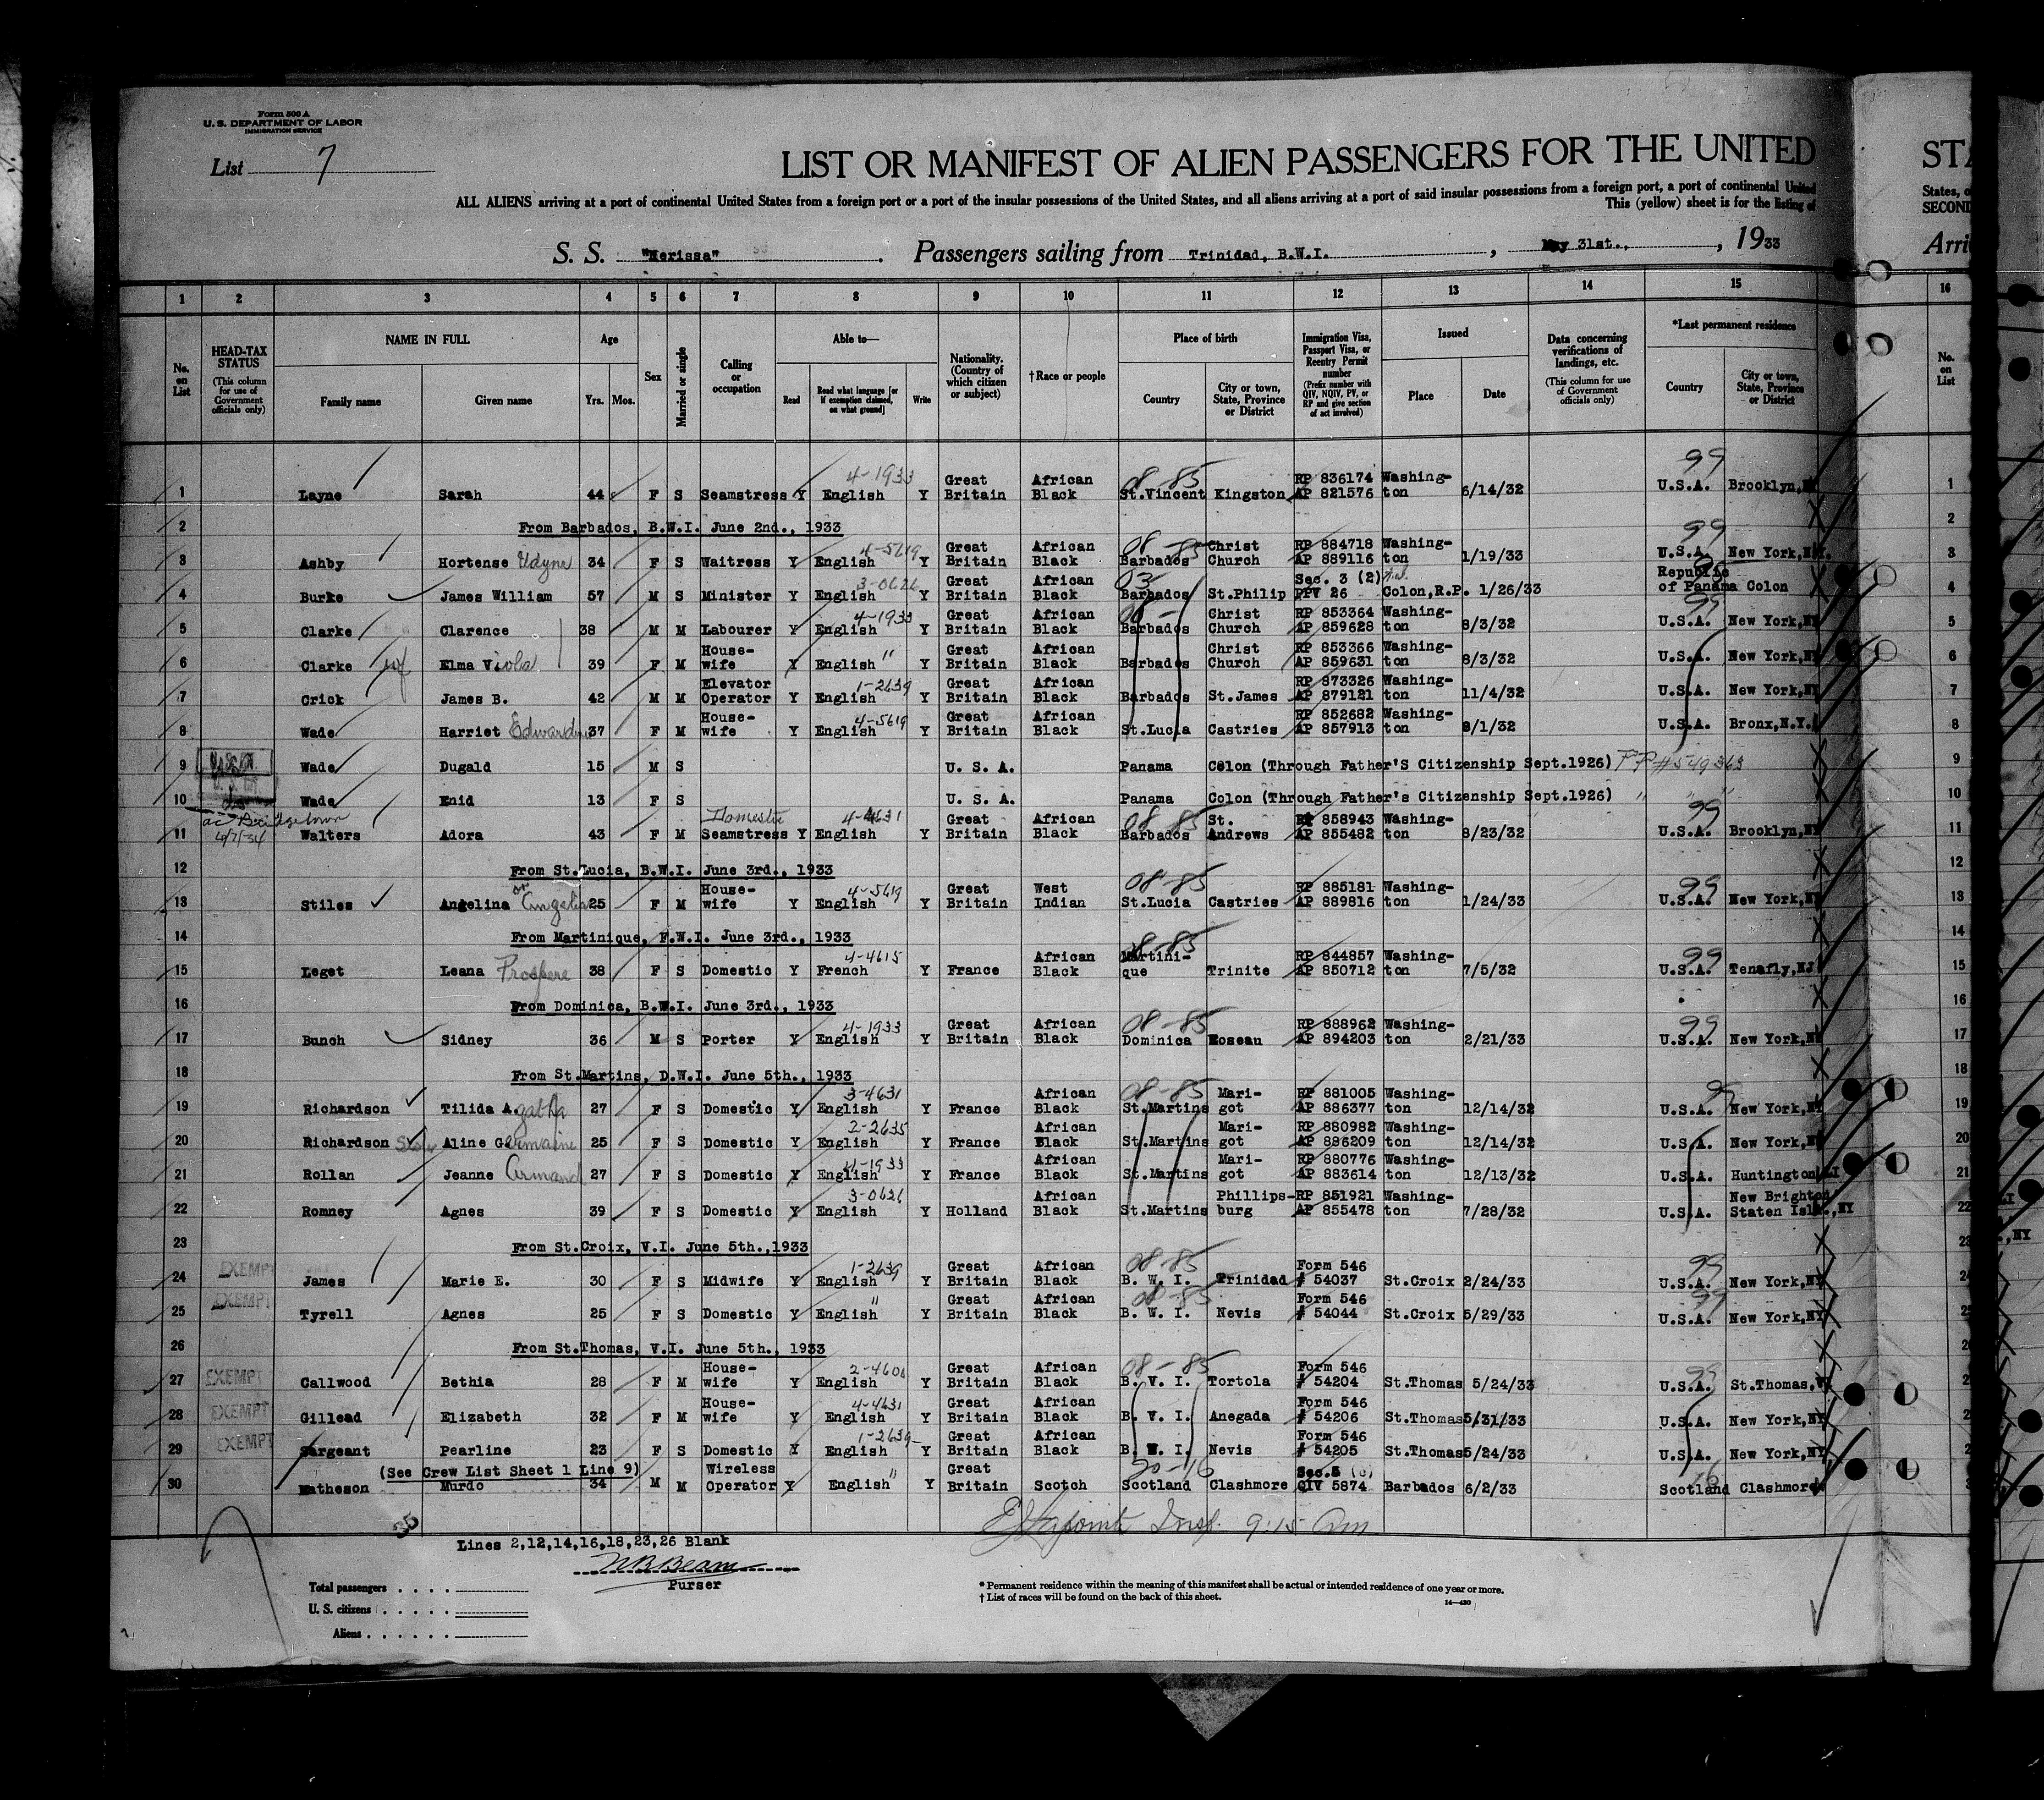 Form 500 A
U. S. DEPARTMENT OF LABOR
IMMIGRATION SERVICE
List 7
LIST OR MANIFEST OF ALIEN PASSENGERS FOR THE UNITED
ALL ALIENS arriving at a port of continental United States from a foreign port or a port of the insular possessions of the United States, and all aliens arriving at a port of said insular possessions from a foreign port, a port of continental United
This (yellow) sheet is for the listing of
S. S. "Nerissa" Passengers sailing from Trinidad, B.W.I. , May 31st., , 1933
STA
States, o
SECOND
Arri
1 2 3 4 5 6 7 8 9 10 11 12 13 14 15 16
No. on List HEAD-TAX STATUS (This column for use of Government officials only) NAME IN FULL Family name Given name Age Yrs. Mos. Sex Married or single Calling or occupation Able to— Read Read what language [or if exemption claimed, on what ground] Write Nationality. (Country of which citizen or subject) †Race or people Place of birth Country City or town, State, Province or District Immigration Visa, Passport Visa, or Reentry Permit number (Prefix number with QIV, NQIV, PV, or RP and give section of act involved) Issued Place Date Data concerning verifications of landings, etc. (This column for use of Government officials only) *Last permanent residence Country City or town, State, Province or District No. on List
1 Layne Sarah 44 F S Seamstress Y English 4-1933 Y Great Britain African Black 08-85 St.Vincent Kingston RP 836174 AP 821576 Washington 6/14/32 99 U.S.A. Brooklyn, 1
2 From Barbados, B.W.I. June 2nd., 1933 2
3 Ashby Hortense Udyne 34 F S Waitress Y English 4-5619 Y Great Britain African Black 08-85 Barbados Christ Church RP 884718 AP 889116 Washington 1/19/33 99 U.S.A. New York,N.Y. 3
4 Burke James William 57 M S Minister Y English 3-0626 Y Great Britain African Black 03 Barbados St.Philip Sec. 3 (2) PPV 26 Colon,R.P. 1/26/33 Republic of Panama Colon 4
5 Clarke Clarence 38 M M Labourer Y English 4-1933 Y Great Britain African Black 08- Barbados Christ Church RP 853364 AP 859628 Washington 8/3/32 99 U.S.A. New York,NY 5
6 Clarke wf Elma Viola 39 F M Housewife Y English " Y Great Britain African Black Barbados Christ Church RP 853366 AP 859631 Washington 8/3/32 U.S.A. New York,NY 6
7 Crick James B. 42 M M Elevator Operator Y English 1-2639 Y Great Britain African Black Barbados St.James RP 873326 AP 879121 Washington 11/4/32 U.S.A. New York,NY 7
8 Wade Harriet Edwardine 37 F M Housewife Y English 4-5619 Y Great Britain African Black St.Lucia Castries RP 852682 AP 857913 Washington 8/1/32 U.S.A. Bronx,N.Y. 8
9 Wade Dugald 15 M S U. S. A. Panama Colon (Through Father'S Citizenship Sept.1926) PP #549363 9
10 Wade Enid 13 F S U. S. A. Panama Colon (Through Father's Citizenship Sept.1926) " " 10
ac Bridgetown 4/7/34
11 Walters Adora 43 F M Domestic Seamstress Y English 4-4631 Y Great Britain African Black 08-85 Barbados St. Andrews RP 858943 AP 855482 Washington 8/23/32 99 U.S.A. Brooklyn,NY 11
12 From St.Lucia, B.W.I. June 3rd., 1933 12
13 Stiles Angelina or Angelin 25 F M Housewife Y English 4-5619 Y Great Britain West Indian 08-85 St.Lucia Castries RP 885181 AP 889816 Washington 1/24/33 99 U.S.A. New York,NY 13
14 From Martinique, F.W.I. June 3rd., 1933 14
15 Leget Leana Prospere 38 F S Domestic Y French 4-4615 Y France African Black 08-85 Martinique Trinite RP 844857 AP 850712 Washington 7/5/32 99 U.S.A. Tenafly,NJ 15
16 From Dominica, B.W.I. June 3rd., 1933 16
17 Bunch Sidney 36 M S Porter Y English 4-1933 Y Great Britain African Black 08-85 Dominica Roseau RP 888962 AP 894203 Washington 2/21/33 99 U.S.A. New York,NY 17
18 From St.Martins, D.W.I. June 5th., 1933 18
19 Richardson Tilida A.gatha 27 F S Domestic Y English 3-4631 Y France African Black 08-85 St.Martins Marigot RP 881005 AP 886377 Washington 12/14/32 99 U.S.A. New York,NY 19
20 Richardson Sister Aline Germaine 25 F S Domestic Y English 2-2635 Y France African Black St.Martins Marigot RP 880982 AP 886209 Washington 12/14/32 U.S.A. New York,NY 20
21 Rollan Jeanne Armand 27 F S Domestic Y English 4-1933 Y France African Black St.Martins Marigot RP 880776 AP 883614 Washington 12/13/32 U.S.A. Huntington,LI 21
22 Romney Agnes 39 F S Domestic Y English 3-0626 Y Holland African Black St.Martins Phillipsburg RP 851921 AP 855478 Washington 7/28/32 U.S.A. New Brighton Staten Isl.,NY 22
23 From St.Croix, V.I. June 5th.,1933 23
24 EXEMPT James Marie E. 30 F S Midwife Y English 1-2639 Y Great Britain African Black 08-85 B. W. I. Trinidad Form 546 # 54037 St.Croix 2/24/33 99 U.S.A. New York,NY 24
25 EXEMPT Tyrell Agnes 25 F S Domestic Y English " Y Great Britain African Black 08-85 B. W. I. Nevis Form 546 # 54044 St.Croix 5/29/33 99 U.S.A. New York,NY 25
26 From St.Thomas, V.I. June 5th., 1933
27 EXEMPT Callwood Bethia 28 F M Housewife Y English 2-4606 Y Great Britain African Black 08-85 B. V. I. Tortola Form 546 # 54204 St.Thomas 5/24/33 99 U.S.A. St.Thomas,VI
28 EXEMPT Gillead Elizabeth 32 F M Housewife Y English 4-4631 Y Great Britain African Black B. V. I. Anegada Form 546 # 54206 St.Thomas 5/31/33 U.S.A. New York,NY
29 EXEMPT Sargeant Pearline 23 F S Domestic Y English 1-2639 Y Great Britain African Black B. W. I. Nevis Form 546 # 54205 St.Thomas 5/24/33 U.S.A. New York,NY
(See Crew List Sheet 1 Line 9)
30 Matheson Murdo 34 M M Wireless Operator Y English " Y Great Britain Scotch 30-16 Scotland Clashmore Sec.5 (c) QIV 5874 Barbados 6/2/33 16 Scotland Clashmore
Insp. 9:15 am
35
Lines 2,12,14,16,18,23,26 Blank
NBBeam
Purser
Total passengers
U. S. citizens
Aliens
* Permanent residence within the meaning of this manifest shall be actual or intended residence of one year or more.
† List of races will be found on the back of this sheet.
14—430